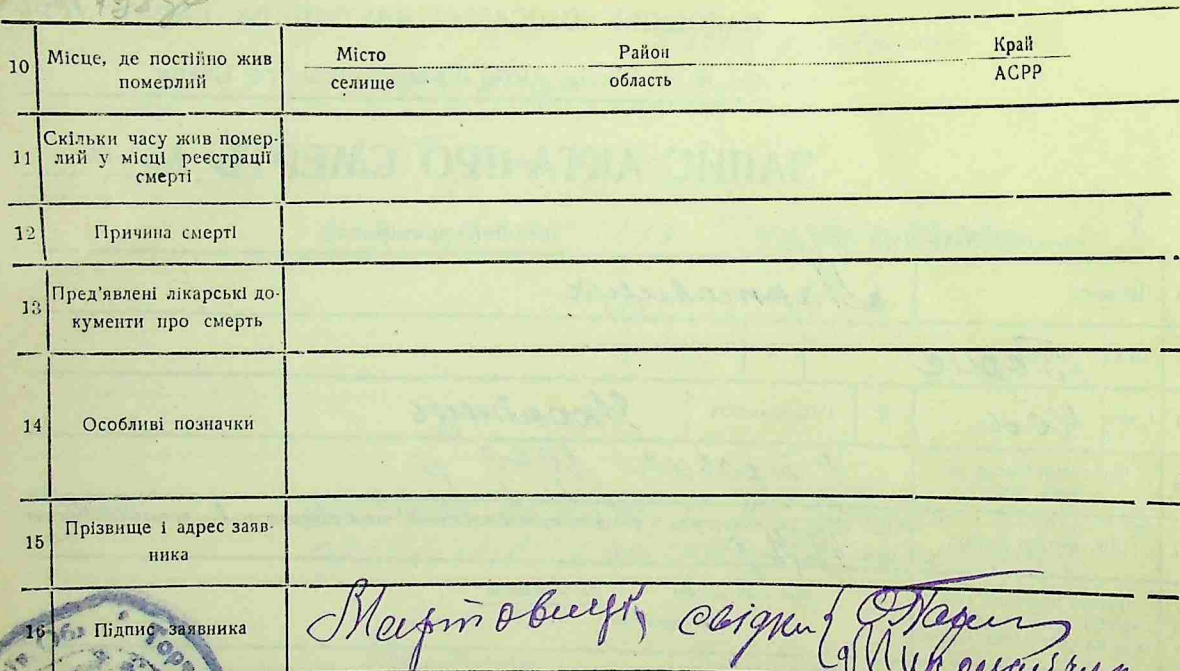 10 Місце, де постійно жив
померлий
Місто Район Край
селище область АСРР
11 Скільки часу жив помер-
лий у місці реєстрації
смерті
12 Причина смерті
13 Пред'явлені лікарські до-
кументи про смерть
14 Особливі позначки
15 Прізвище і адрес заяв-
ника
16 Підпис заявника свідки